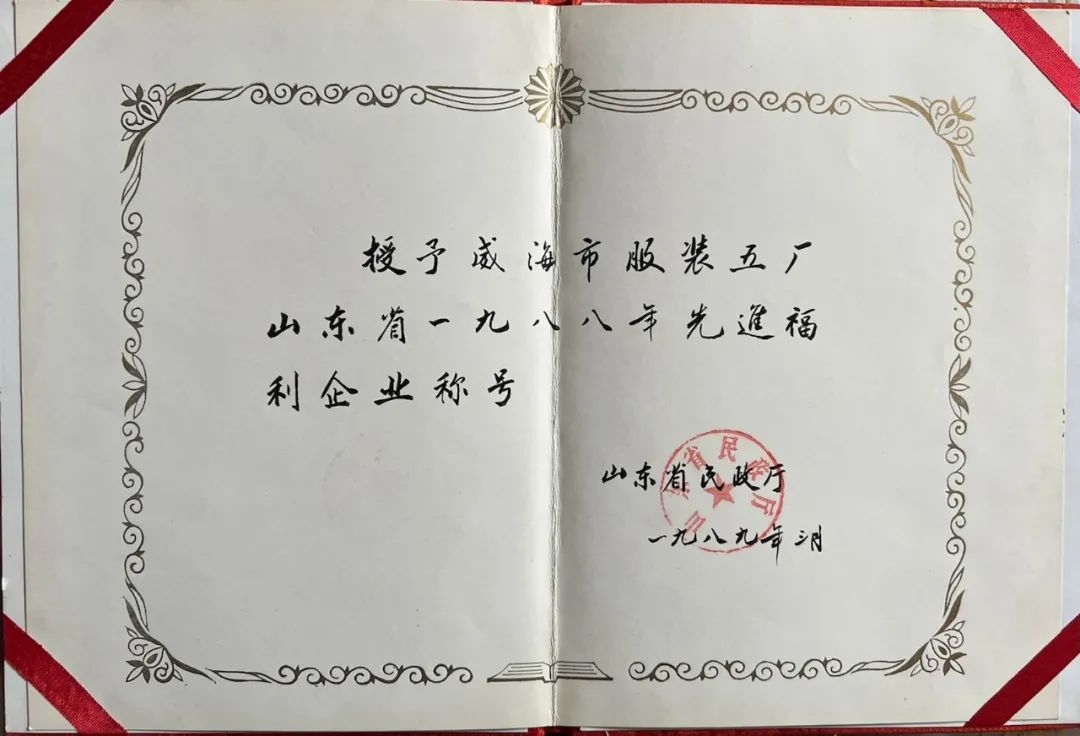 授予威海市服装五厂
山东省一九八八年先進福
利企业称号
山东省民政厅
一九八九年三月
山东省民政厅